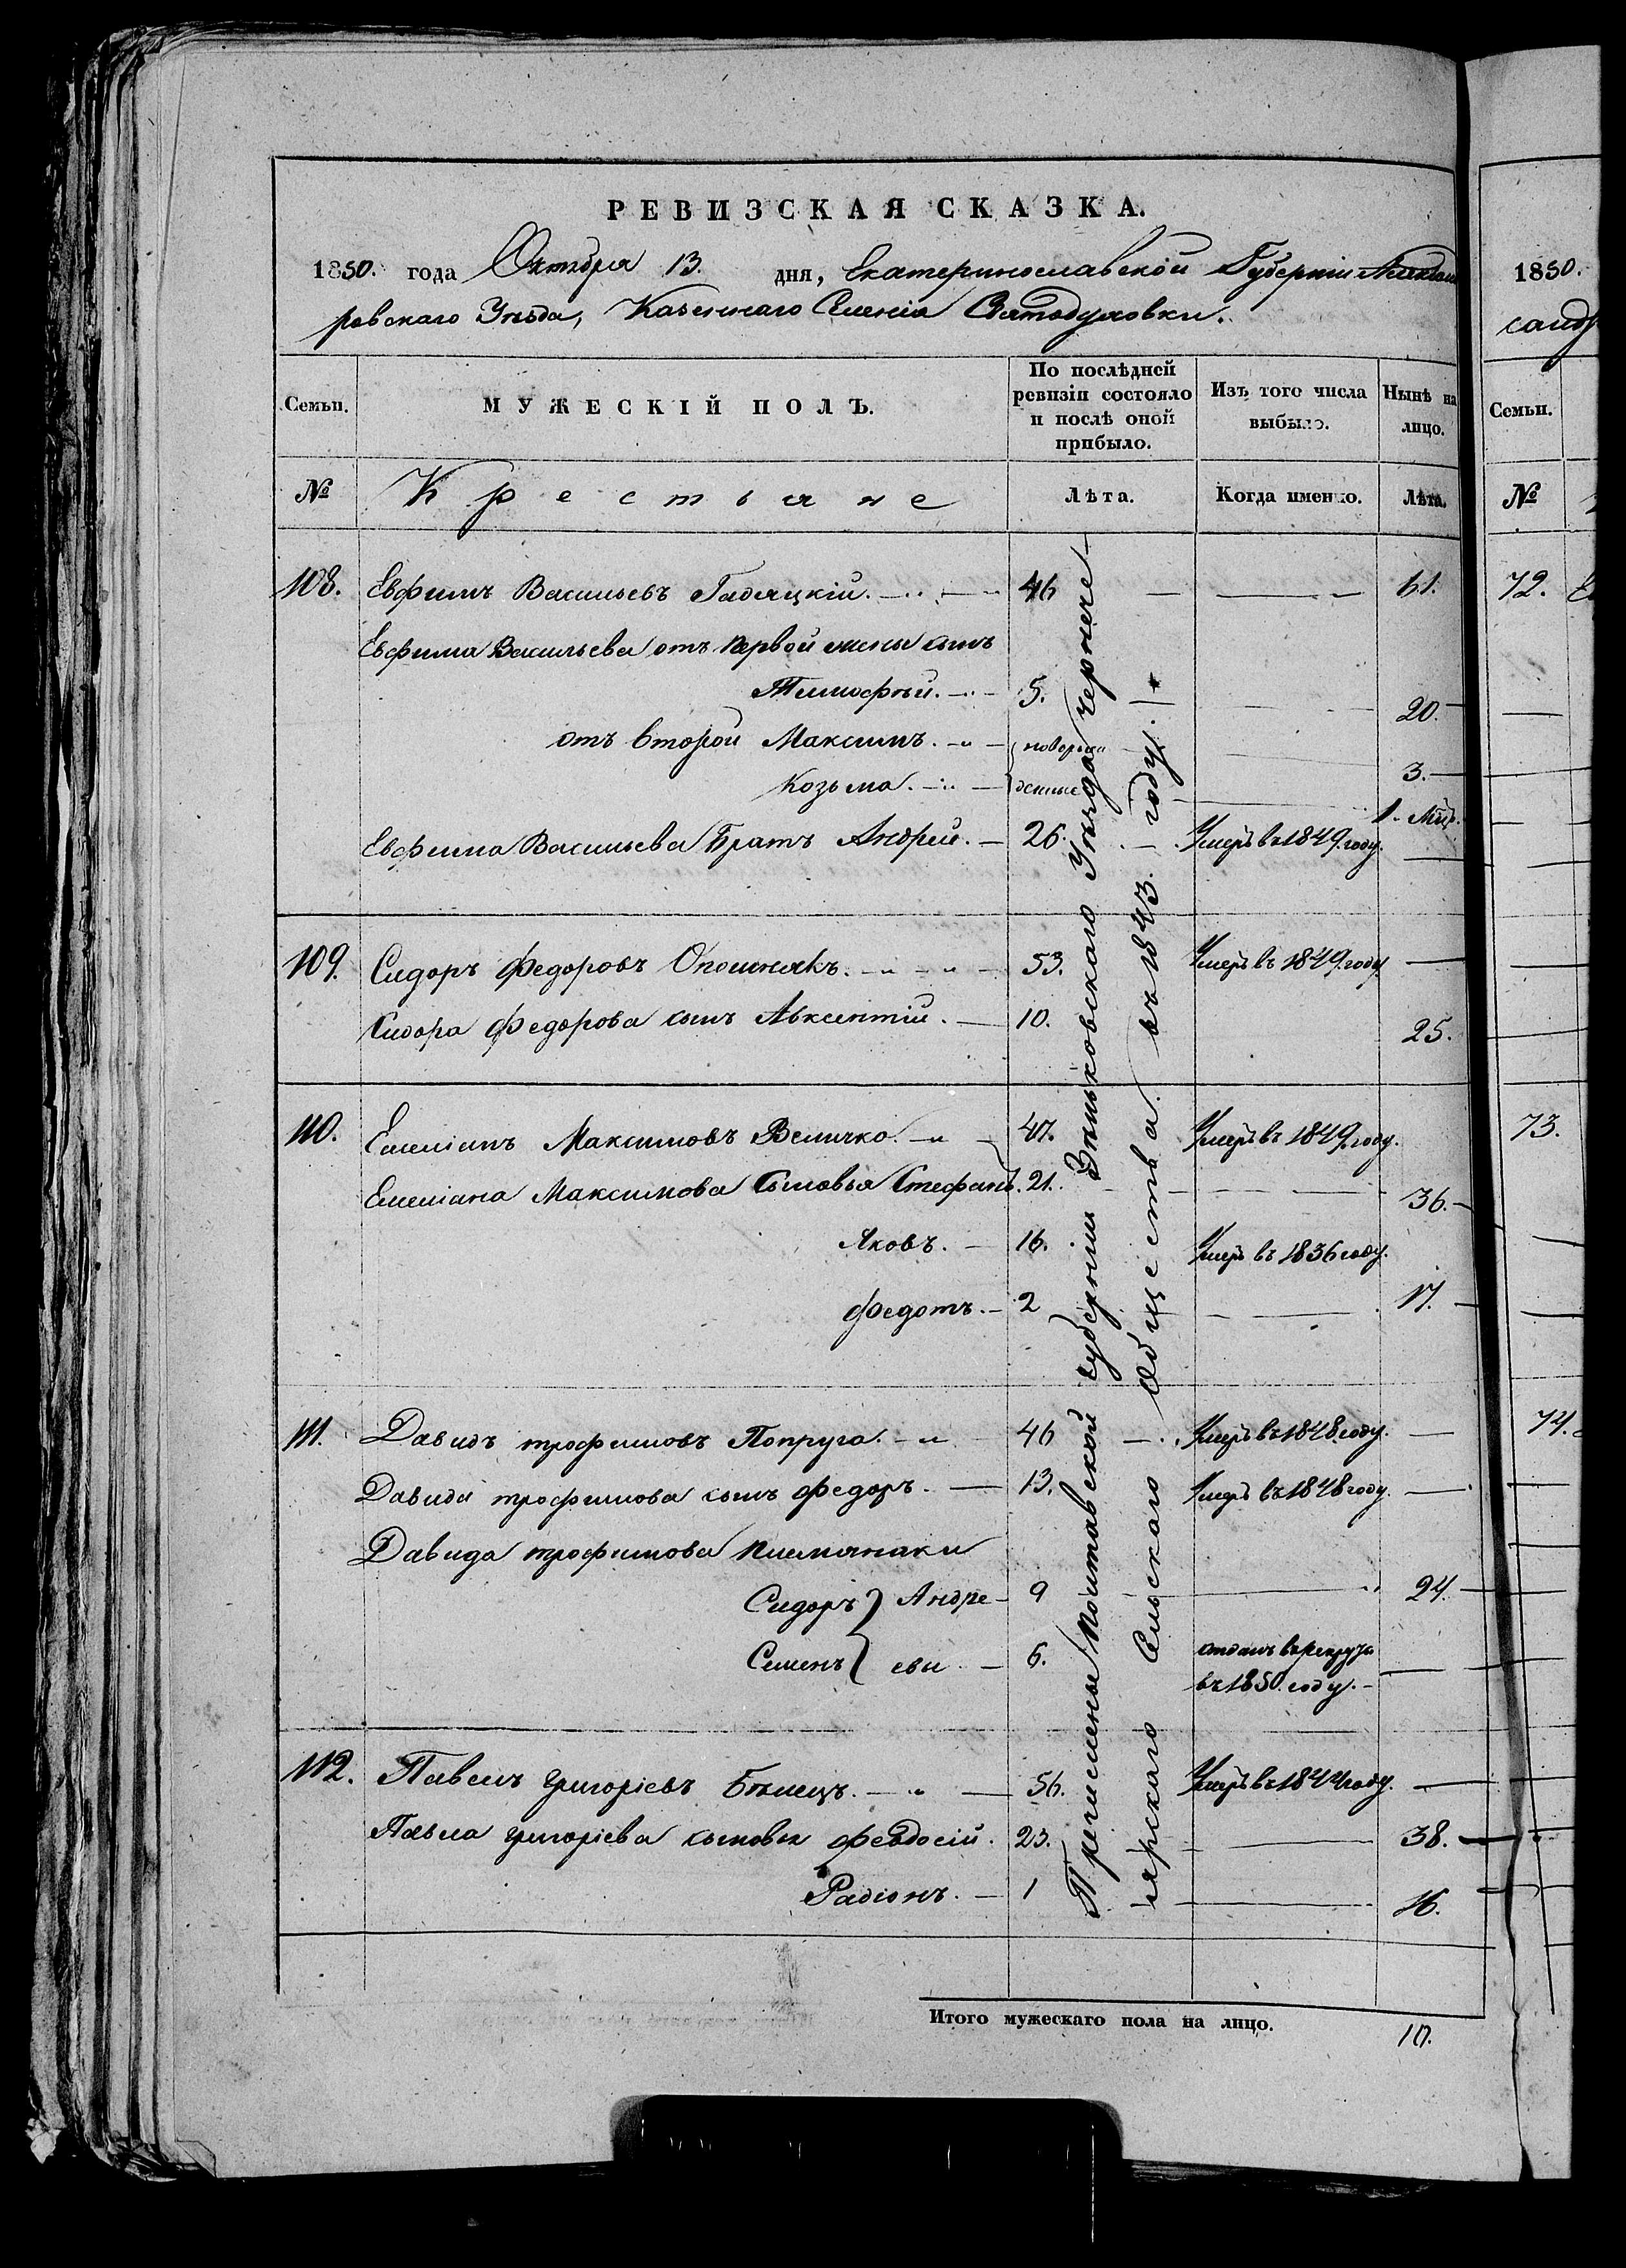 РЕВИЗСКАЯ СКАЗКА.
1850. года Октября 13. дня, Екатеринославской Губерніи Александ
ровскаго Уѣзда, Казеннаго Селенія Святодуховки.
Семьи. МУЖЕСКІЙ ПОЛЪ. По послѣдней ревизіи состояло и послѣ оной прибыло. Изъ того числа выбыло. Нынѣ на лицо.
№ Крестьяне Лѣта. Когда именно. Лѣта.
108. Евфимъ Васильевъ Гадяцкій. 46 61.
Евфима Васильева отъ первой жены сынъ
Тимофѣй. 5. 20.
отъ второй Максимъ. новорож 3.
Козьма. денные 1. Мѣс.
Евфима Васильева Братъ Андрей. 26. Умеръ въ 1849. году.
109. Сидоръ Федоровъ Опошнякъ. 53. Умеръ въ 1849. году
Сидора Федорова сынъ Авксентій. 10. 25.
110. Емеліанъ Максимовъ Величко. 47. Умеръ въ 1849. году.
Емеліана Максимова Сыновья Стефанъ. 21. 36.
Яковъ. 16. Умеръ въ 1836 году.
Федотъ. 2 17.
111. Давидъ Трофимовъ Попруга. 46 Умеръ въ 1848. году.
Давида Трофимова сынъ Федоръ. 13. Умеръ въ 1848 году.
Давида Трофимова племянники
Сидоръ } Андре 9 24.
Семенъ } евы 6. отданъ въ рекруты
въ 1850. году.
112. Павелъ Григорієвъ Бѣлецъ. 56. Умеръ въ 1844 году.
Павла Григорієва сыновья Феодосій. 23. 38.
Радіонъ. 1 16.
Причислены Полтавской губерніи Зѣньковскаго Уѣзда Чернече
лярскаго Сельскаго Общества. въ 1843. году.
Итого мужескаго пола на лицо. 10.
1850.
санд
Семьи.
№
72.
73.
74.